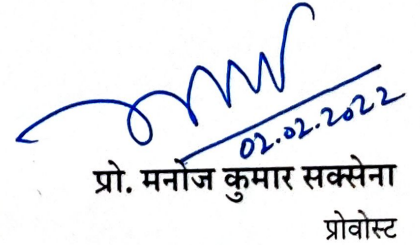 02.02.2022
प्रो. मनोज कुमार सक्सेना
प्रोवोस्ट